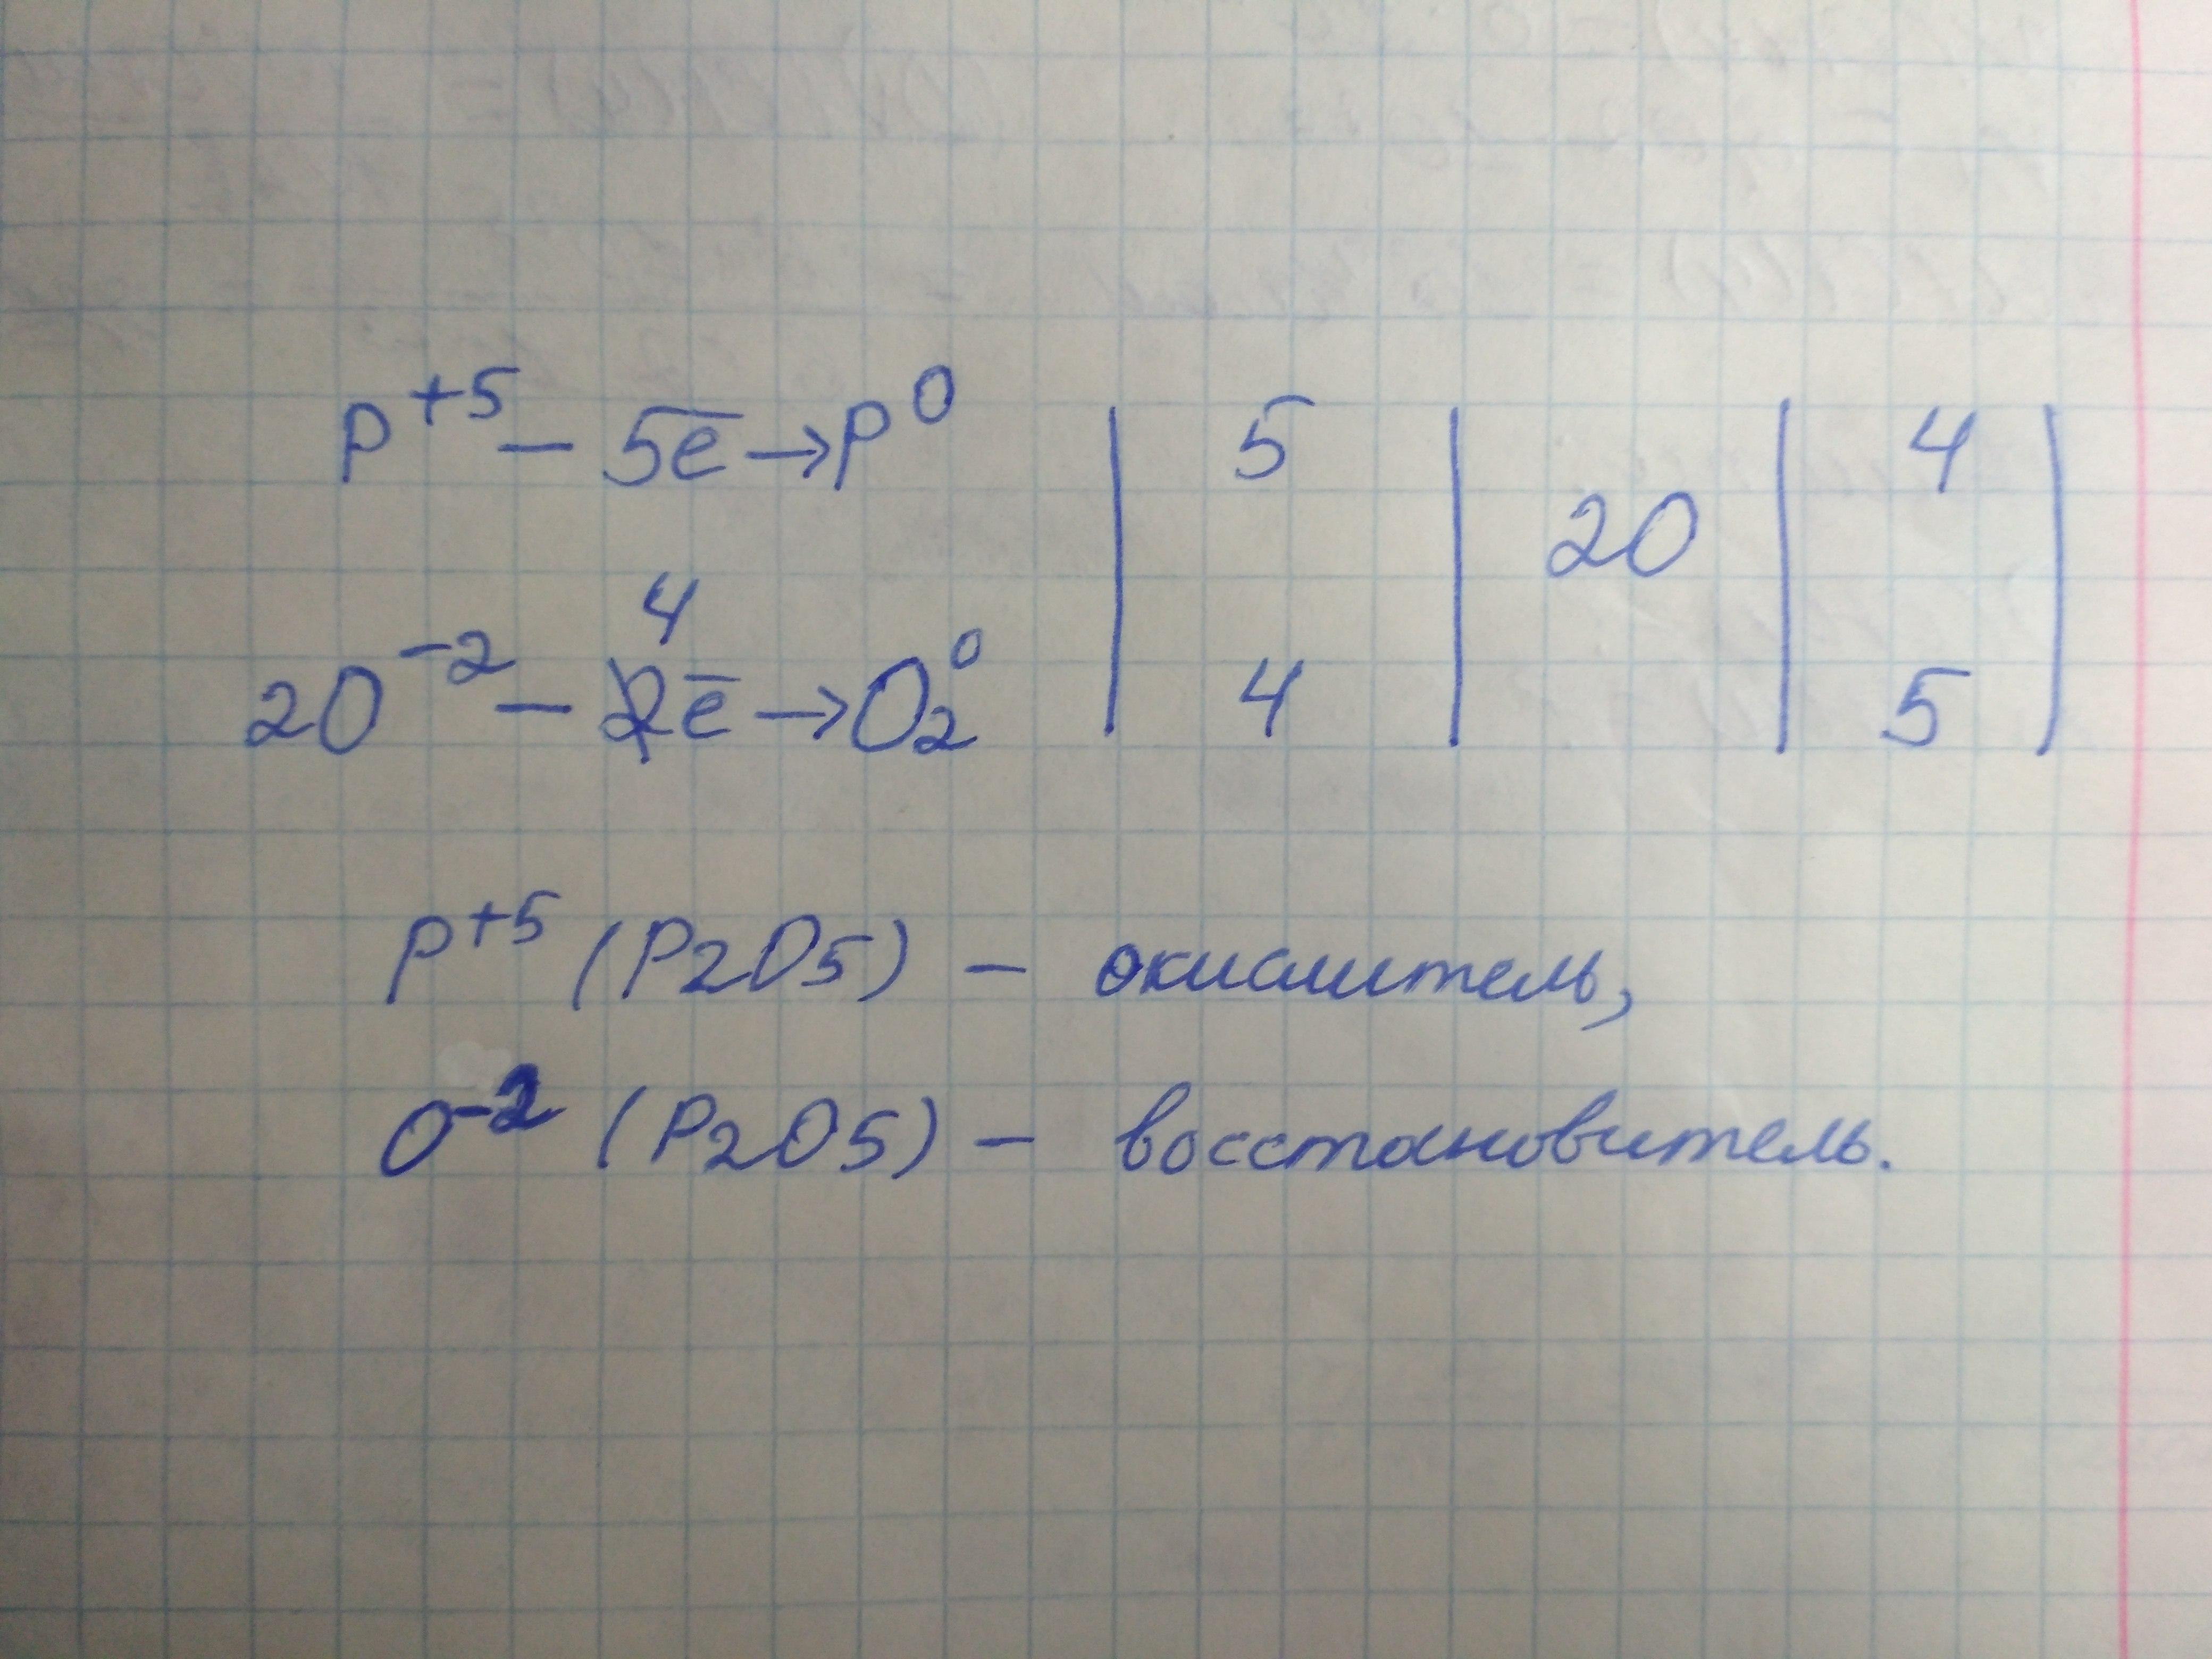 P⁺⁵ – 5ē → P⁰ | 5 | 20 | 4 |
4
2O⁻² – 2ē → O₂⁰ | 4 | | 5 |
P⁺⁵ (P2O5) – окислитель,
O⁻² (P2O5) – восстановитель.